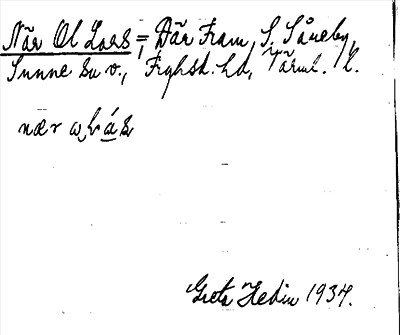 När Ol Lars = Där Fram, S. Såneby,
Sunne sn v., Fryksd. hd, Värml. l.
nær ω̨ lás
Greta Hedin 1934.